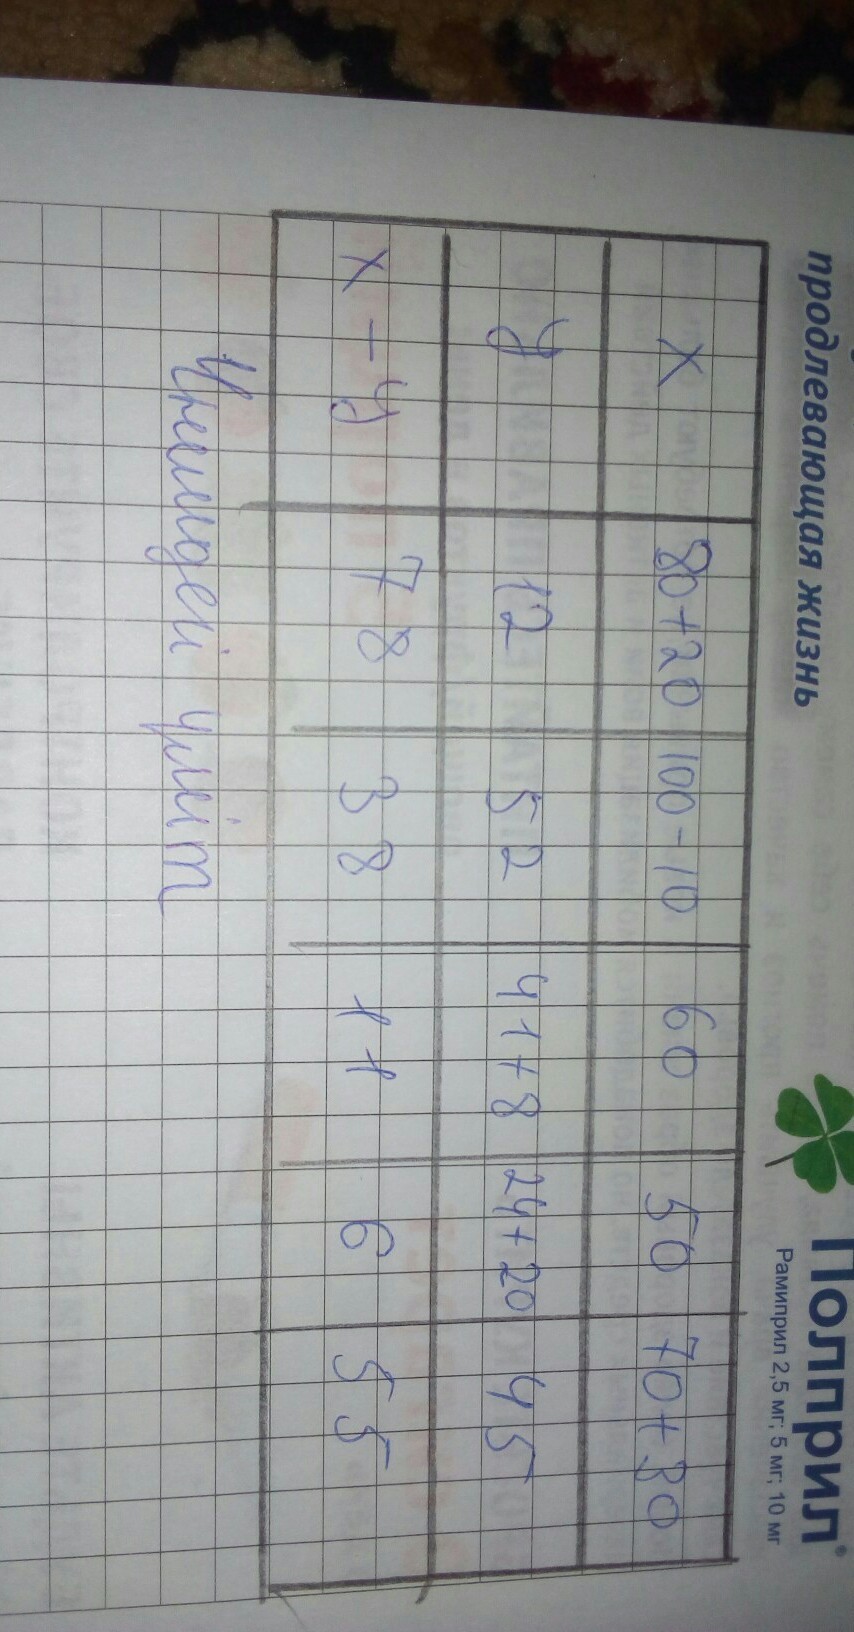 продлевающая жизнь
Полприл®
Рамиприл 2,5 мг; 5 мг; 10 мг
x 80+20 100-10 60 50 70+30
y 12 52 41+8 24+20 45
x-y 78 38 11 6 55
үміт